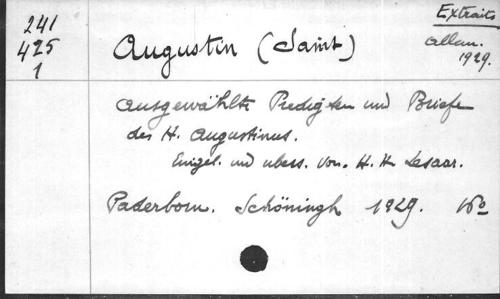 Extraits
allem.
1929.
241
425
1
Augustin (Saint)
Ausgewählte Predigten und Briefe
des H. Augustinus.
Eingel. und übers. von. H. H. Lesaar.
Paderborn. Schöningh 1929. 16º